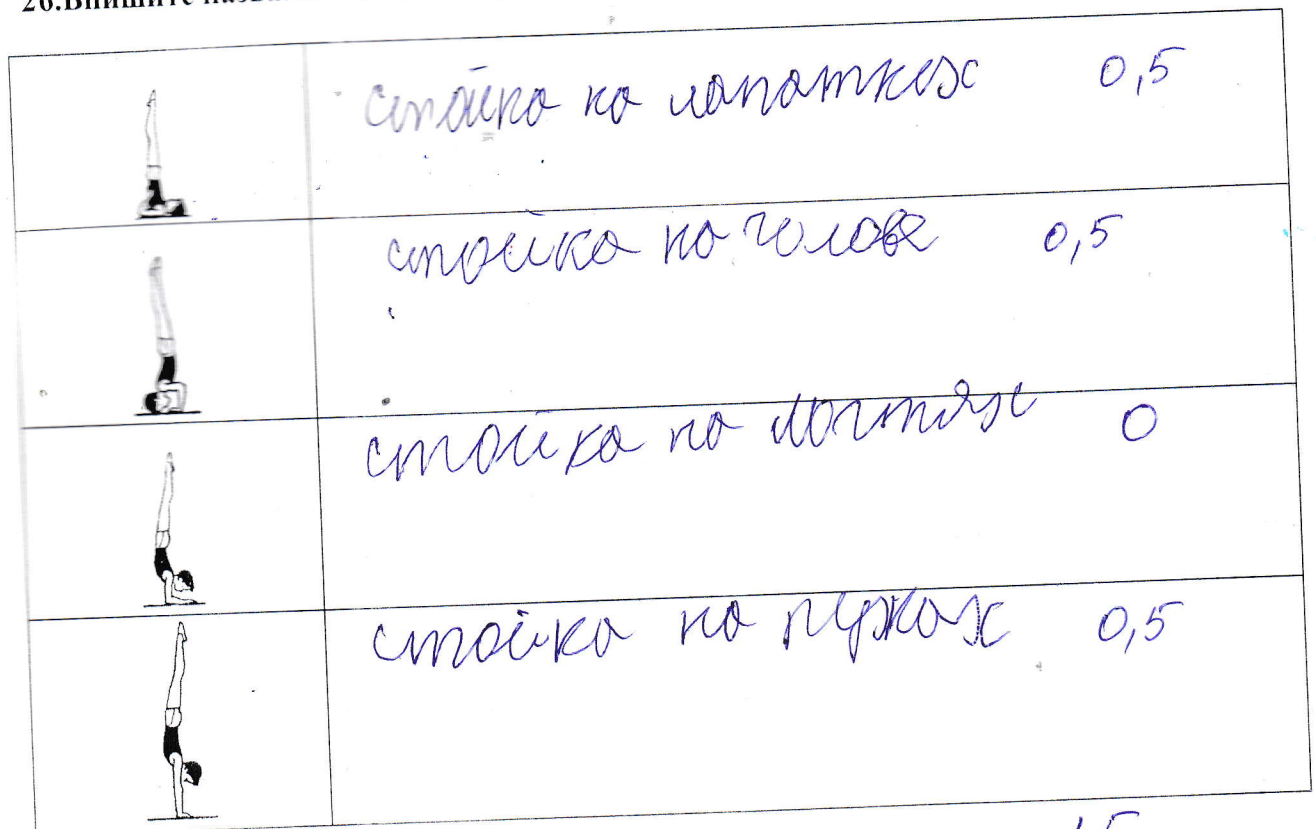 26.Впишите
стойка на лопатках 0,5
стойка на голове 0,5
стойка на локтях 0
стойка на руках 0,5
1,5